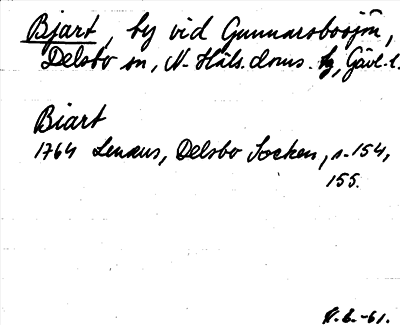 Bjart, by vid Gunnarsbosjön,
Delsbo sn, N. Häls. doms. , Gävl. l.
Biart
1764 Lenæus, Delsbo Socken, s. 154,
155.
-61.